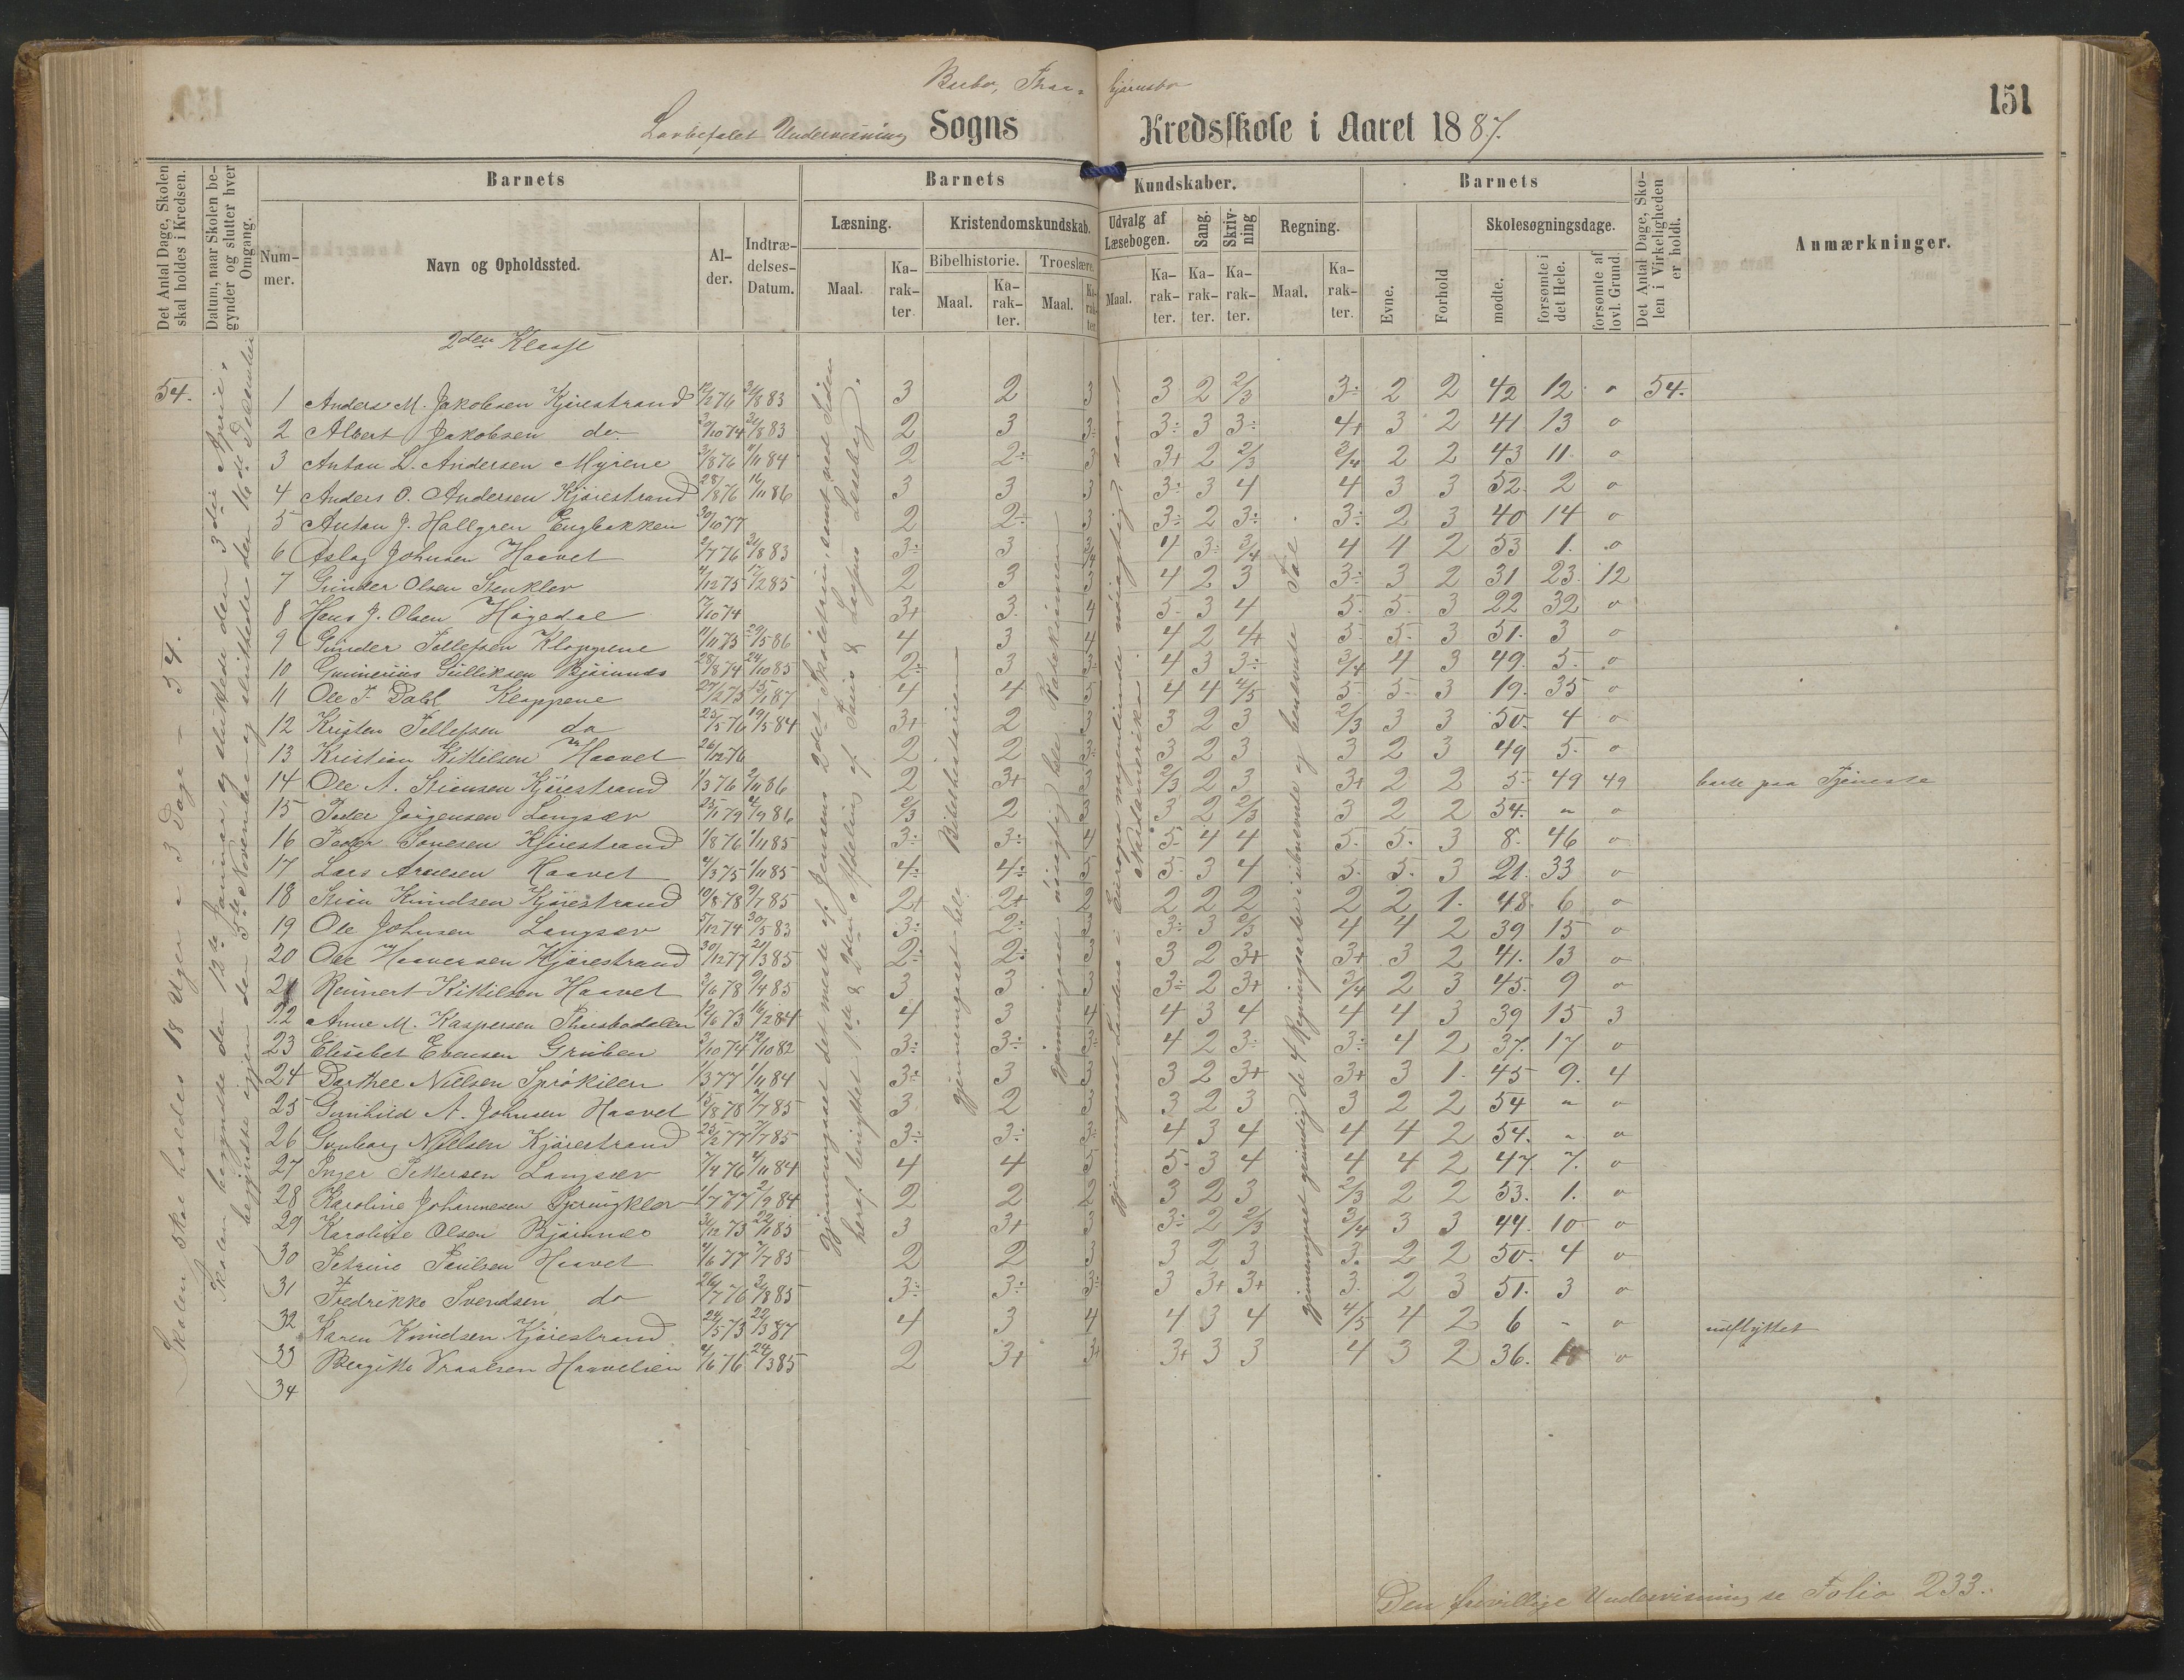 Barbo, Thor- bjørnsbo
151
Lovbefalet Undervisning Sogns Kredsskole i Aaret 1887.
Det Antal Dage, Skolen skal holdes i Kredsen.
Datum, naar Skolen begynder og slutter hver Omgang.
Barnets
Nummer.
Navn og Opholdssted.
Alder.
Indtrædelses-Datum.
Barnets Kundskaber.
Læsning.
Maal.
Karakter
Kristendomskundskab.
Bibelhistorie.
Maal.
Karakter.
Troeslære.
Maal.
Karakter
Udvalg af Læsebogen.
Maal.
Karakter.
Sang.
Karakter.
Skrivning
Karakter.
Regning.
Maal.
Karakter.
Barnets
Evne.
Forhold
Skolesøgningsdage.
mødte.
forsømte i det Hele.
forsømte af lovl. Grund.
Det Antal Dage, Skolen i Virkeligheden er holdt.
Anmærkninger.
2den Klasse
54.
Skolen skal holdes 18 Uger a 3 Dage - 54.
1 Anders M. Jakobsen Kjørestrand 12/2 76 31/8 83 3 2 3 3 2 2/3 3÷ 2 2 42 12 o 54.
2 Albert Jakobsen do. 31/8 83 2 3 3÷ 3÷ 3 3÷ 4+ 3 2 41 13 o
3 Anton L. Andersen Myrene 2 2÷ 3 3+ 2 2/3 3/4 2 2 43 11 o
4 Anders O. Andersen Kjørestrand 3 3 3 3÷ 3 4 4 3 3 52 2 o
5 Anton J. Hallgren Engbakken 30/10 77 2 2÷ 3 3÷ 2 3÷ 3÷ 2 3 40 14 o
6 Aslag Johnsen Haavet 2/7 76 31/8 83 3÷ 3 3/4 4 3÷ 3/4 4 4 2 53 1 o
7 Gunder Olsen Stenklev 4/12 75 17/2 85 2 3 3 4 2 3 3÷ 3 2 31 23 12
8 Hans J. Olsen Høgedal 7/10 74 3+ 3 4 5 3 4 5 5 3 22 32 o
9 Gunder Tellefsen Kloppene 4 3 4 4 2 4+ 5 5 3 51 3 o
10 Gunerius Gulliksen Bjørnnes 28/8 74 24/10 85 2÷ 3 3÷ 4 3 3÷ 3/4 4 3 49 5 o
11 Ole T. Dahl Kloppene 4 4 5 4 4 4/5 5 5 3 19 35 o
12 Kristen Tellefsen do 25/5 76 19/5 84 3+ 2 3 3 2 3 2/3 3 3 50 4 o
13 Kristian Kittilsen Haavet 26/12 76 2 2 3÷ 3 2 3 3 2 3 49 5 o
14 Ole A. Stiensen Kjørestrand 2 3+ 3 2/3 2 3 3+ 2 2 5 49 49 borte paa Tjeneste
15 Peder Jørgensen Langsæv 2/3 2 3 3 2 2/3 3 2 2 54 " o
16 Peder Tonesen Kjørestrand 1/8 76 1/11 85 3÷ 3÷ 4 5 4 4 5 5 3 8 46 o
17 Lars Haavet 4/3 75 1/11 85 4÷ 4÷ 5 5 3 4 5 5 3 21 33 o
18 Stian Knudsen Kjørestrand 10/8 78 9/7 85 2+ 2+ 2 2 2 2 2 2 1 48 6 o
19 Ole Johnsen Langsæv 5/12 74 30/5 83 3÷ 2÷ 3 3÷ 3 2/3 4 4 2 39 15 o
20 Ole Haaversen Kjørestrand 30/12 77 21/3 85 2÷ 2÷ 3 3 2 3+ 3+ 3 2 41 13 o
21 Reinert Kittilsen Haavet 2/6 78 9/4 85 3 3 3 3÷ 2 3+ 3/4 2 3 45 9 o
22 Anne M. Kaspersen 12/6 73 16/2 84 4 3 4 4 3 4 4 4 3 39 15 3
23 Elisabet Evensen Gruben 2/10 74 12/10 82 3÷ 3÷ 3÷ 4 2 3÷ 3÷ 4 2 37 17 o
24 Dorthee Nilsen Sprøkilen 1/3 77 1/11 84 3÷ 3 3 3 2 3+ 3+ 3 1 45 9 4
25 Gunhild A. Johnsen Haavet 15/8 78 7/7 85 3 2 3 3 2 3 3 2 2 54 " o
26 Gunborg Nielsen Kjørestrand 25/2 77 7/7 85 3÷ 3÷ 3÷ 4 3 4 4 4 2 54 " o
27 Inger Pettersen Langsæv 7/4 76 4/11 84 4 4 5 5 3 4 4 4 2 47 7 o
28 Karoline Johannesen Springklev 1/7 77 2/9 84 2 2 2 3 2 3 2/3 2 2 53 1 o
29 Karoline Olsen Bjørnnes 31/12 73 22/11 85 3 3+ 3 3÷ 2 2/3 3/4 3 3 44 10 o
30 Petrine Paulsen Haavet 4/6 77 7/7 85 2 2 3 3 2 3 3 2 2 50 4 o
31 Fredrikke Svendsen do 26/7 76 3/8 85 3÷ 3÷ 3÷ 3 3+ 3+ 3 2 3 51 3 o
32 Karen Knudsen Kjørestrand 24/5 73 22/3 87 4 3 4 4 3 4 4/5 4 2 6 - o udflyttet
33 Bergitte Vraalsen Haavelien 4/6 76 24/3 85 2 3+ 3+ 3+ 3 3 4 3 2 36 o
34
Skolen begyndte den 13de Januar og sluttede den 3die April,
begyndte igjen den 5te November og sluttede den 16de December
gjennemgaaet det meste af Jensens 2det Skoletrin, samt ved Siden
heraf benyttet 1ste & 2den Afdeling af Læsebog.
gjennemgaaet hele Bibelhistorien
gjennemgaaet nøiagtig hele Katekismen
gjennemgaaet Landene i Europa nogenlunde nøiagtig, samt
Nordamerika
gjennemgaaet grundig de 4 Regningsarter i ubenævnte og benævnte Tal.
Den frivillige Undervisning se Folio 233.